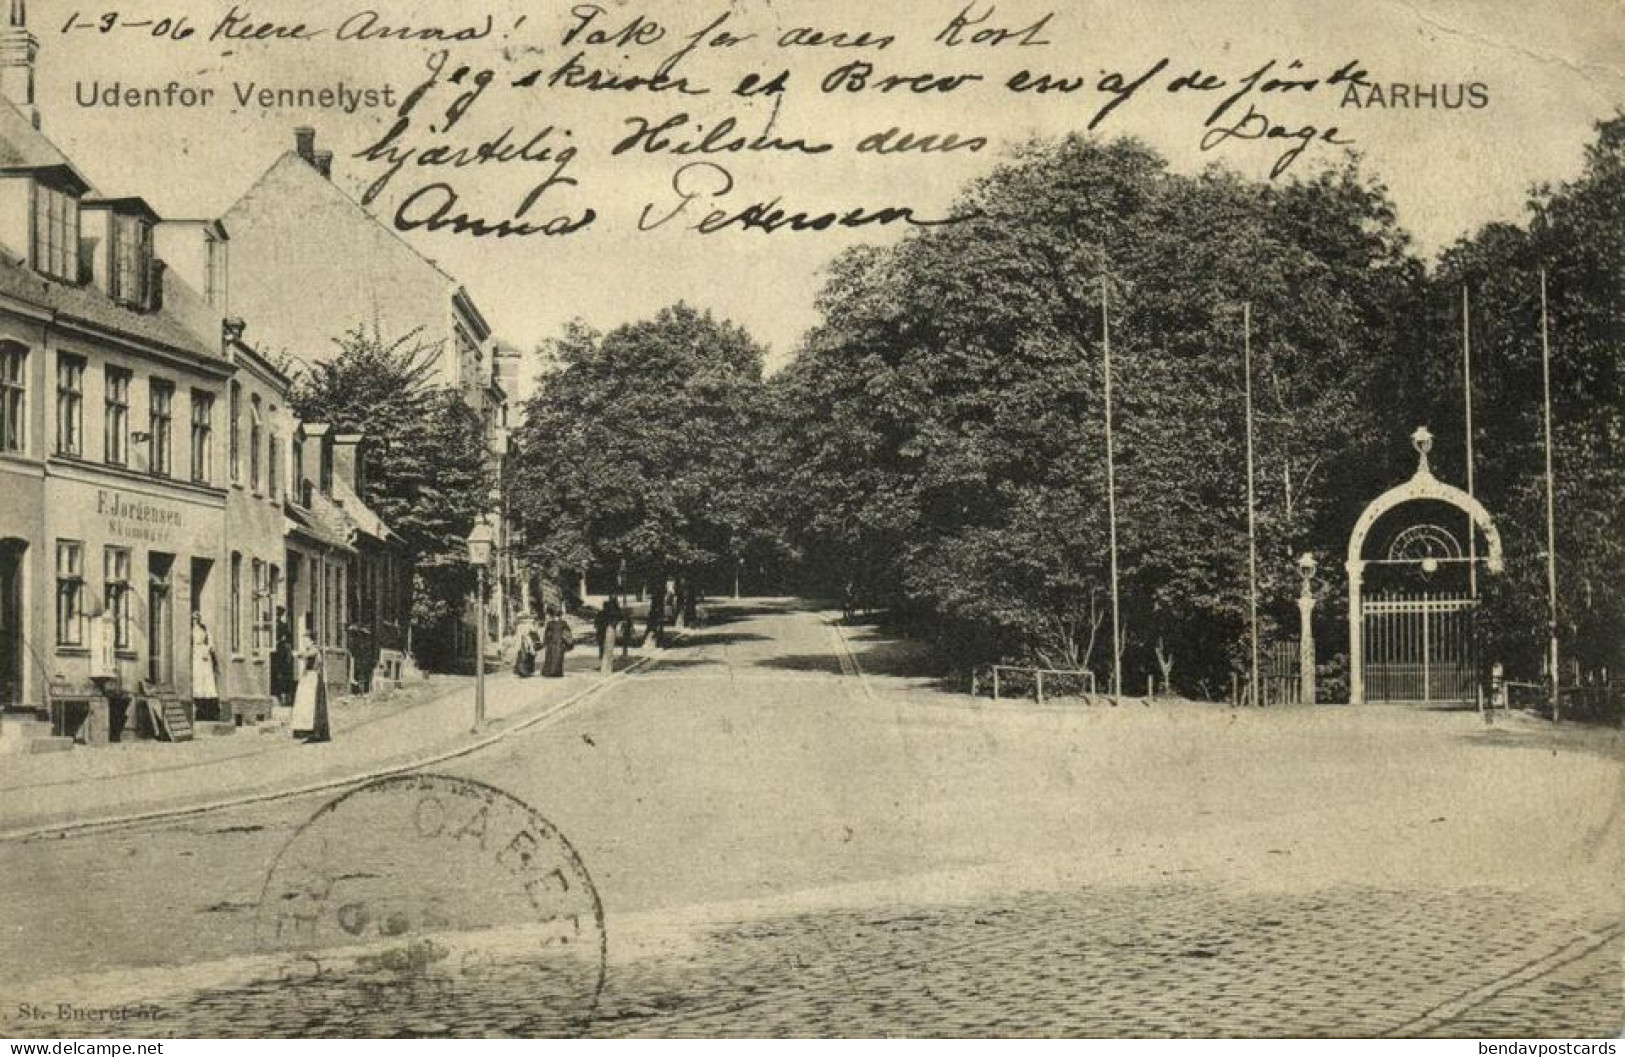 1-3-06 Kære Anna! Tak for deres Kort
Udenfor Vennelyst
Jeg skriver et Brev en af de første
AARHUS
Dage
hjærtelig Hilsen deres
Anna Petersen
F. Jørgensen
Skomager
St. Eneret
bendavpostcards.com
bendavpostcards